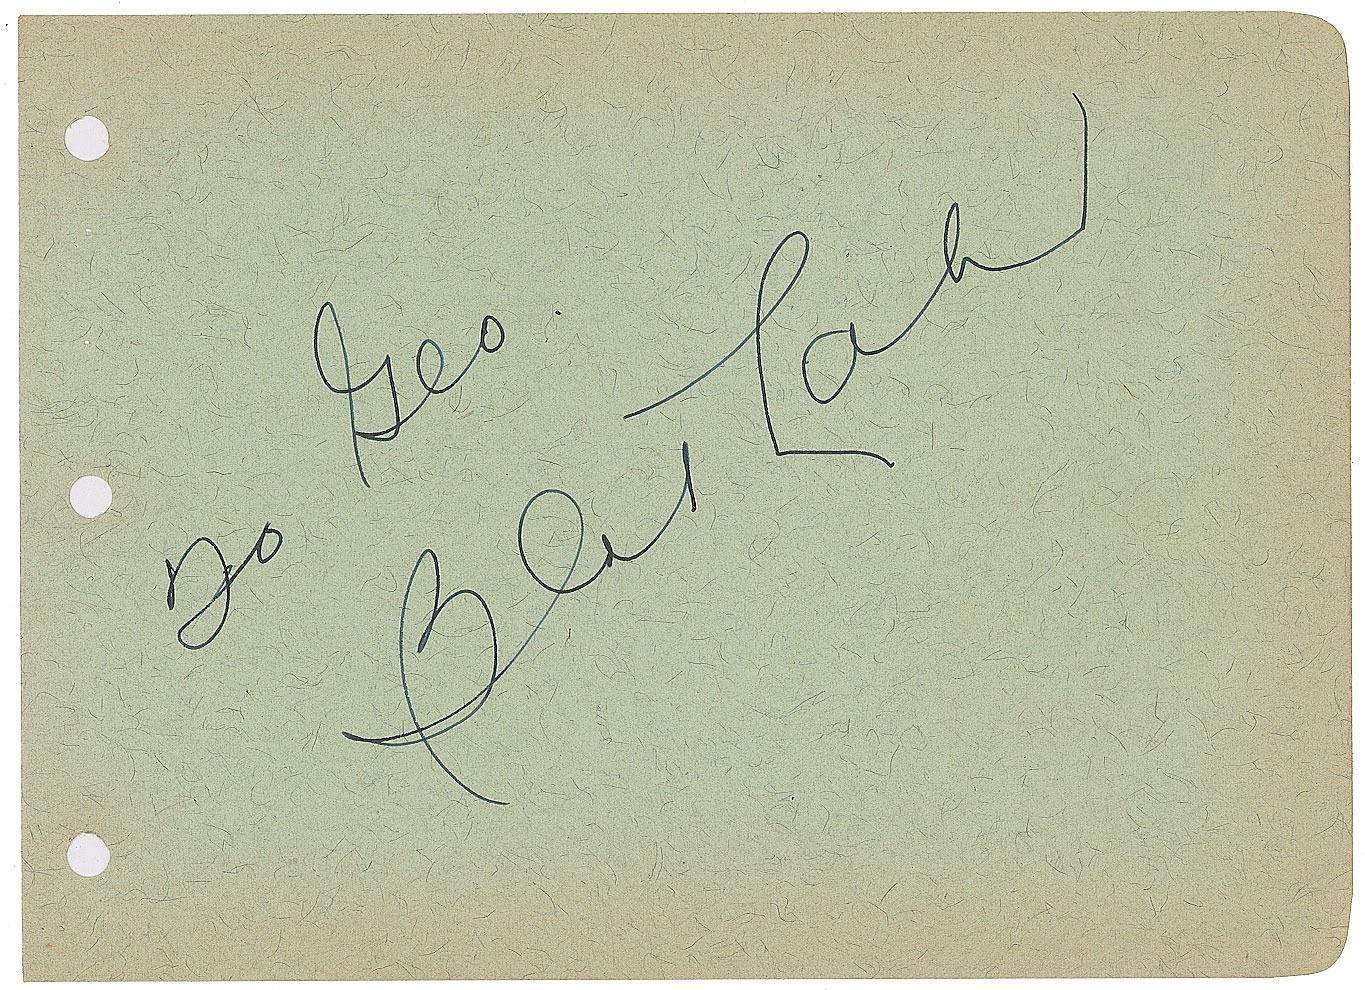 To Geo.
Bert Lahr